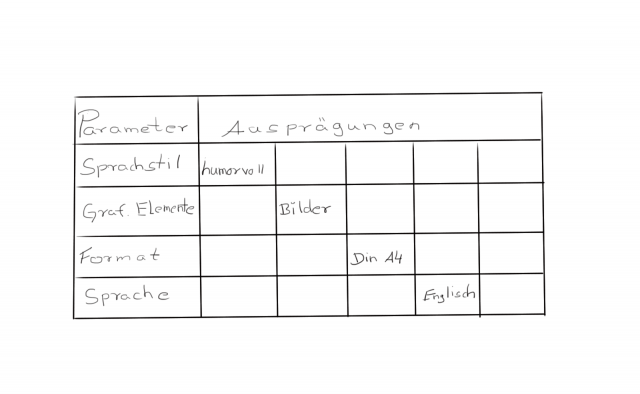 Parameter Ausprägungen
Sprachstil humorvoll
Graf. Elemente Bilder
Format Din A4
Sprache Englisch